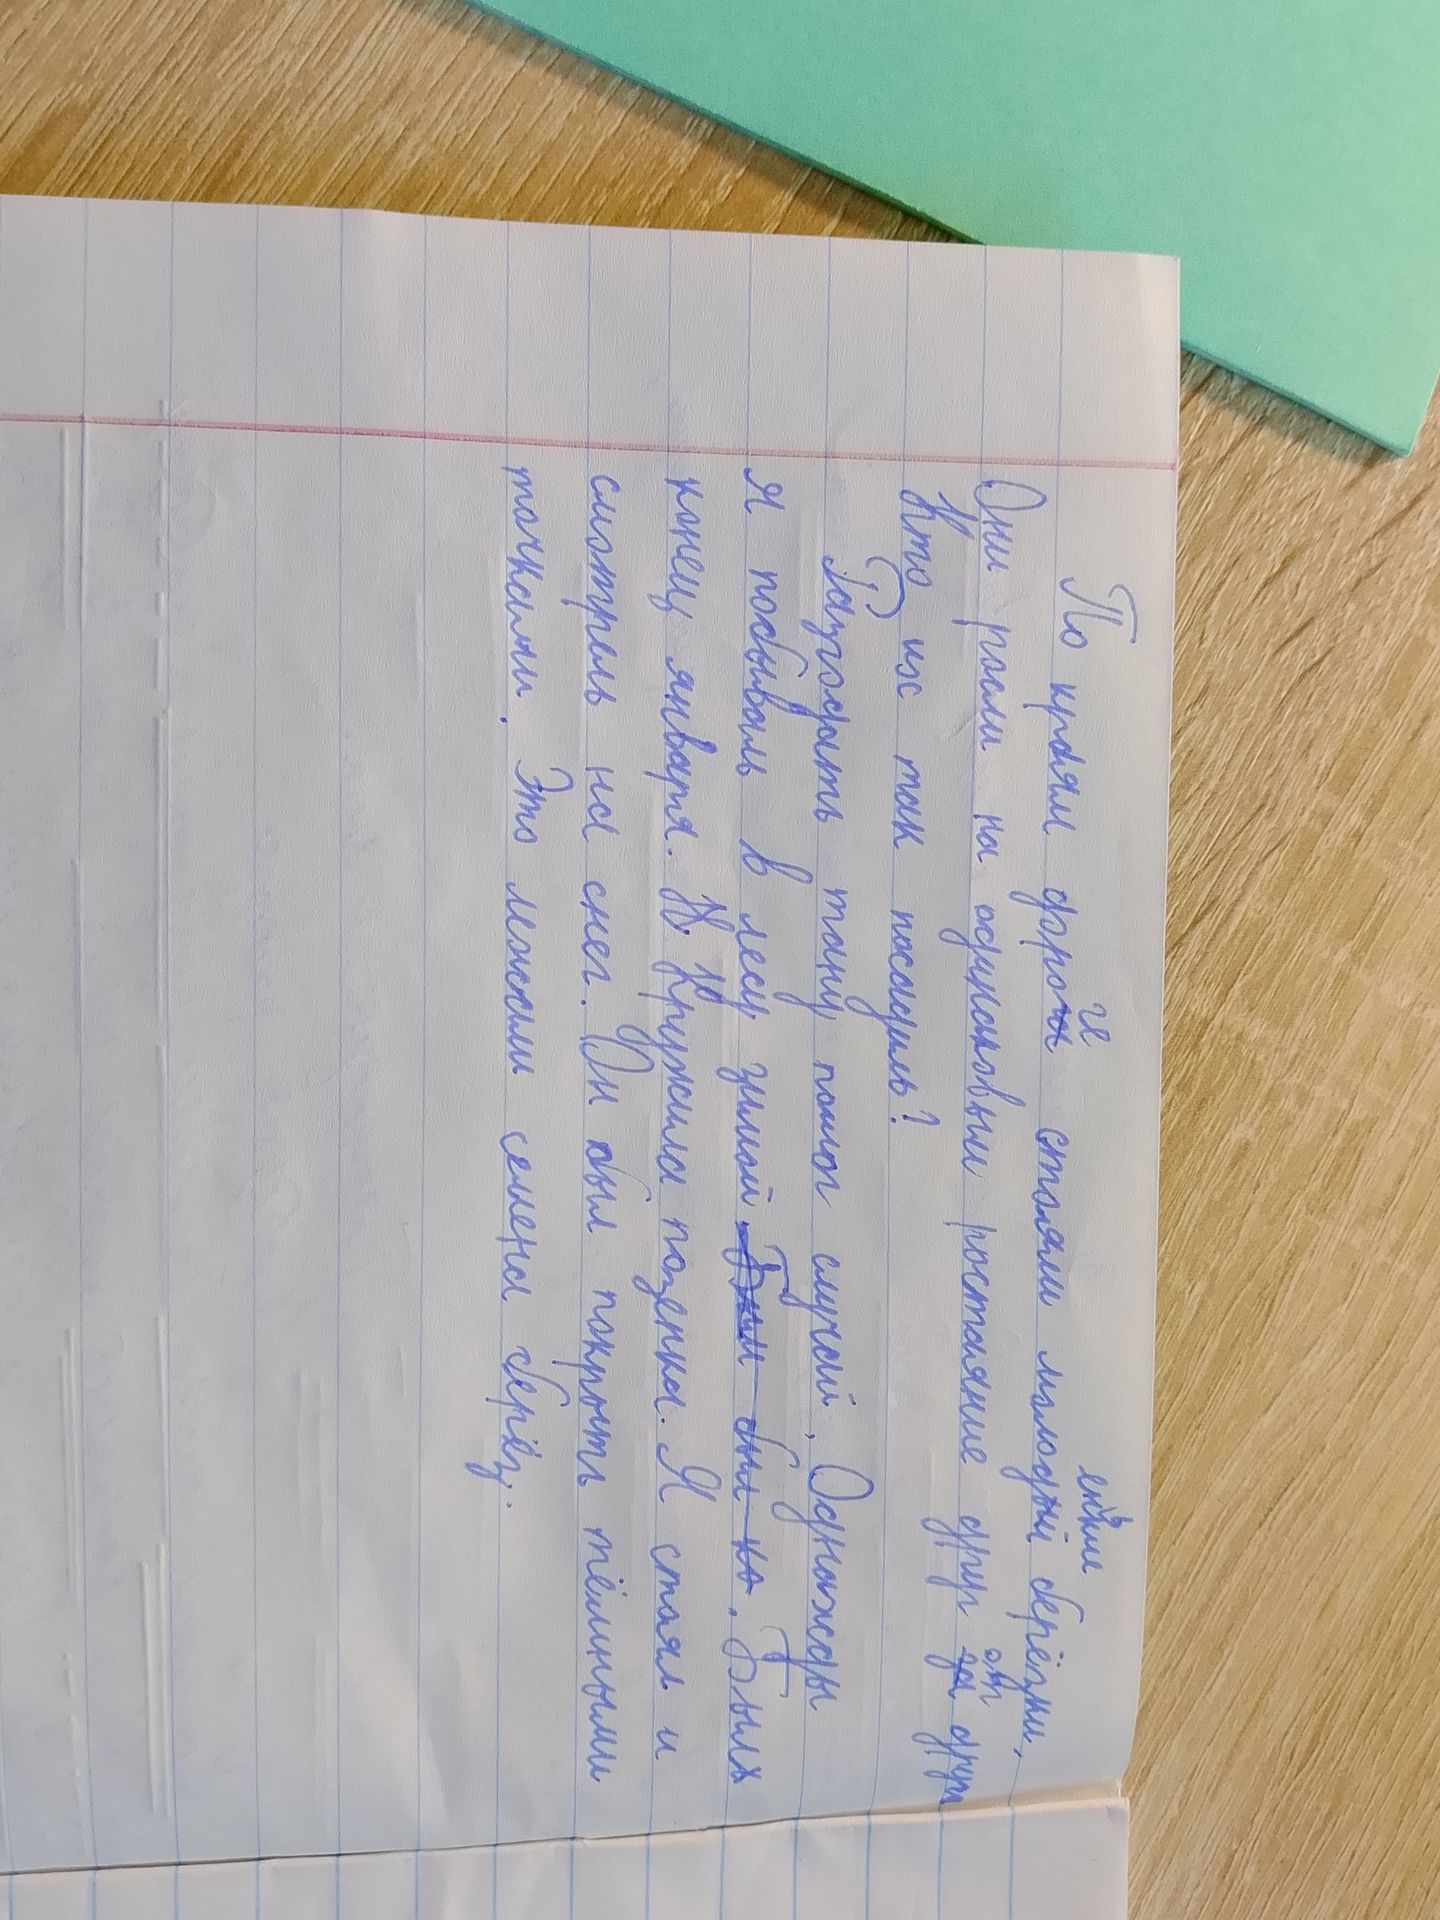 По краям дороге стояли молоденькие берёзки.
Они росли на одинаковым ростаяние друг от друг
Кто их так посадил?
Разгодать таину помог случай. Однажды
я побываль в лесу зимой Был был ко. Былъ
конец января. К. Кружила позёмка. Я стоял и
смотрель на снег. Он был покрыть тёмными
точками. Это лежали семена берёз.